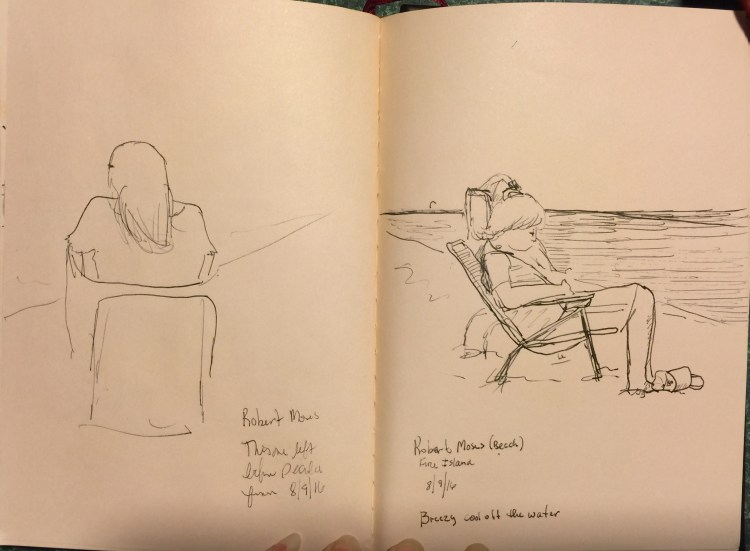 Robert Moses
This one left
before I
8/9/16
Robert Moses (Beach)
Fire Island
8/9/16
Breezy cool off the water